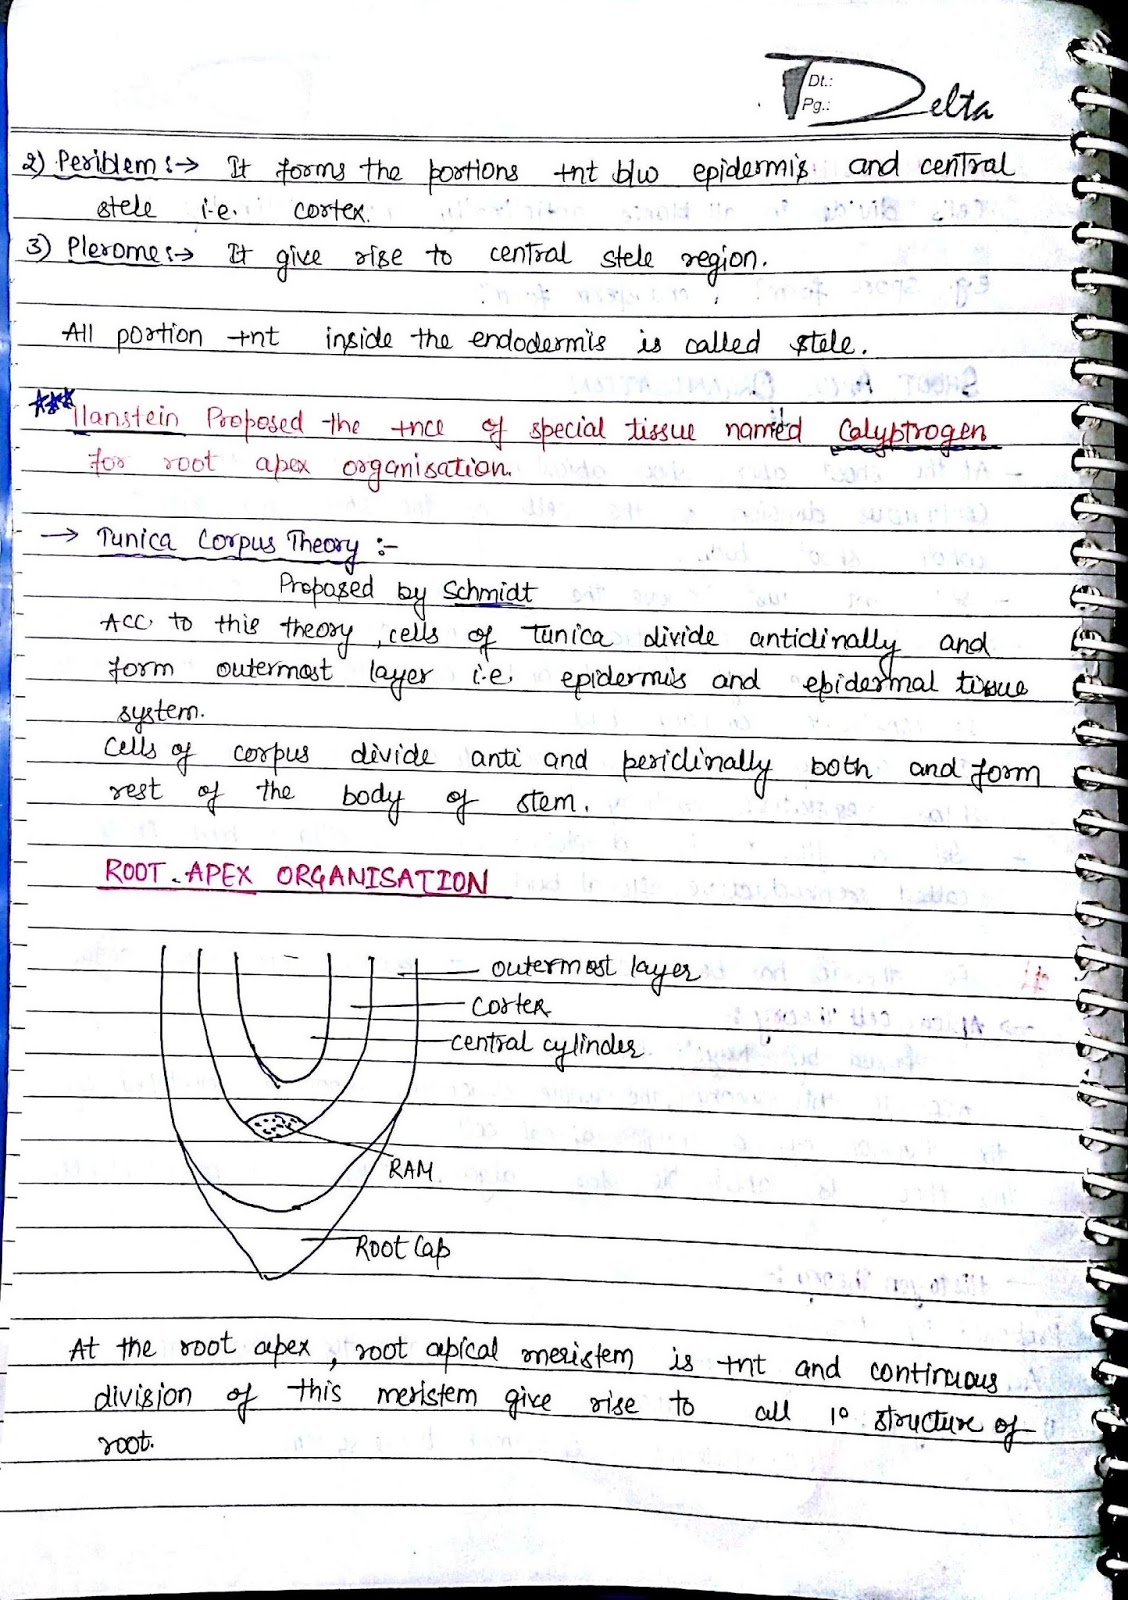 Dt.:
Pg.:
Delta
2) Periblem :→ It forms the portions +nt b/w epidermis and central
stele i.e. cortex.
3) Plerome :→ It give rise to central stele region.
All portion +nt inside the endodermis is called stele.
*** Hanstein Proposed the +nce of special tissue named Calyptrogen
for root apex organisation.
→ Tunica Corpus Theory :-
Proposed by Schmidt
Acc. to this theory, cells of tunica divide anticlinally and
form outermost layer i.e. epidermis and epidermal tissue
system.
Cells of corpus divide anti and periclinally both and form
rest of the body of stem.
ROOT APEX ORGANISATION
outermost layer
cortex
central cylinder
RAM
Root Cap
At the root apex, root apical meristem is +nt and continuous
division of this meristem give rise to all 1° structure of
root.